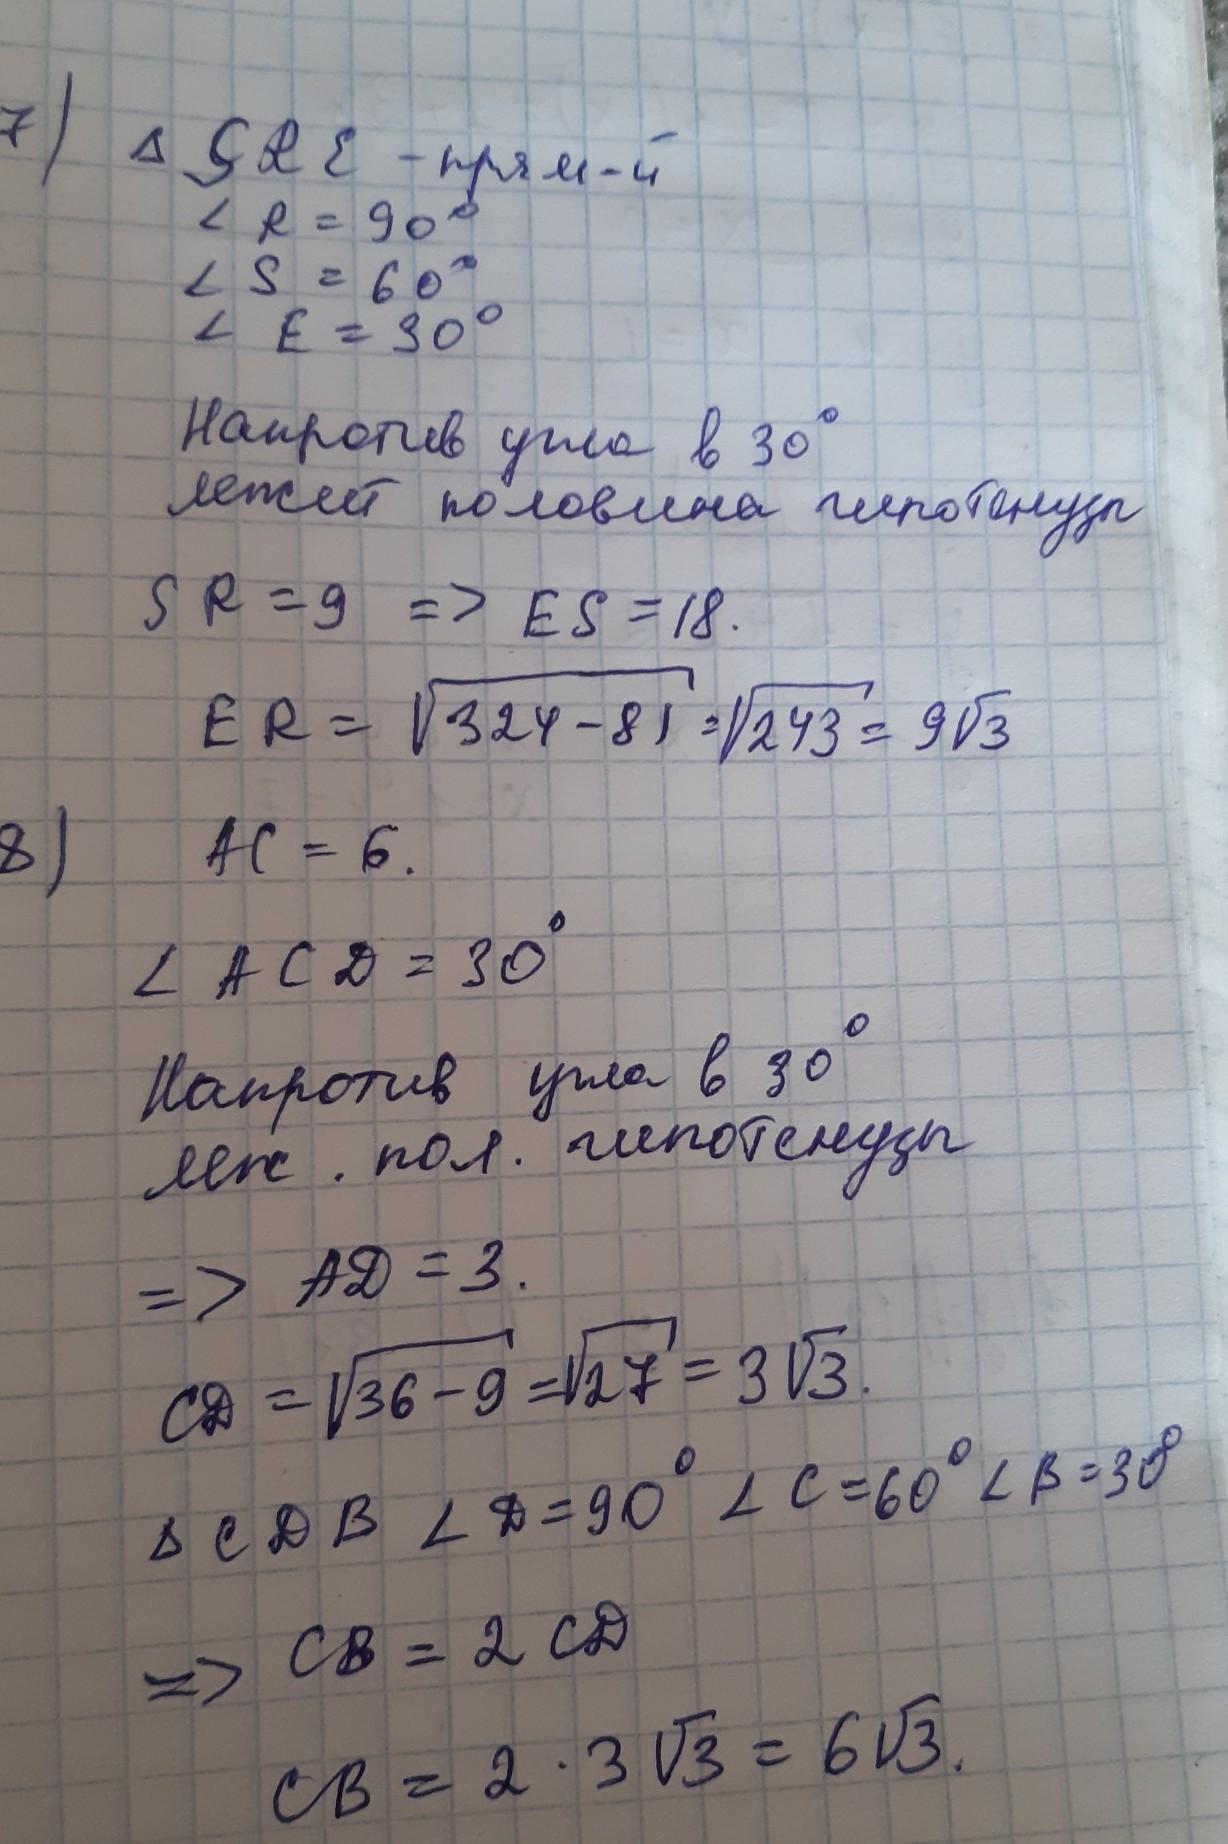 7) Δ SRE - прям-й
∠ R = 90°
∠ S = 60°
∠ E = 30°
Напротив угла в 30°
лежит половина гипотенузы
SR = 9 => ES = 18.
ER = √324-81 = √243 = 9√3
8) AC = 6.
∠ ACD = 30°
Напротив угла в 30°
леж. пол. гипотенузы
=> AD = 3.
CD = √36-9 = √27 = 3√3.
Δ CDB ∠D = 90° ∠C = 60° ∠B = 30°
=> CB = 2 CD
CB = 2 · 3√3 = 6√3.